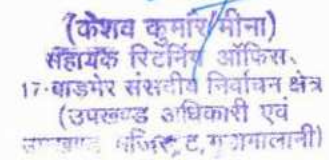 (केशव कुमार मीना)
सहायक रिटर्निंग ऑफिसर
17-बाडमेर संसदीय निर्वाचन क्षेत्र
(उपखण्ड अधिकारी एवं
उपखण्ड मजिस्ट्रेट, गुडामालानी)